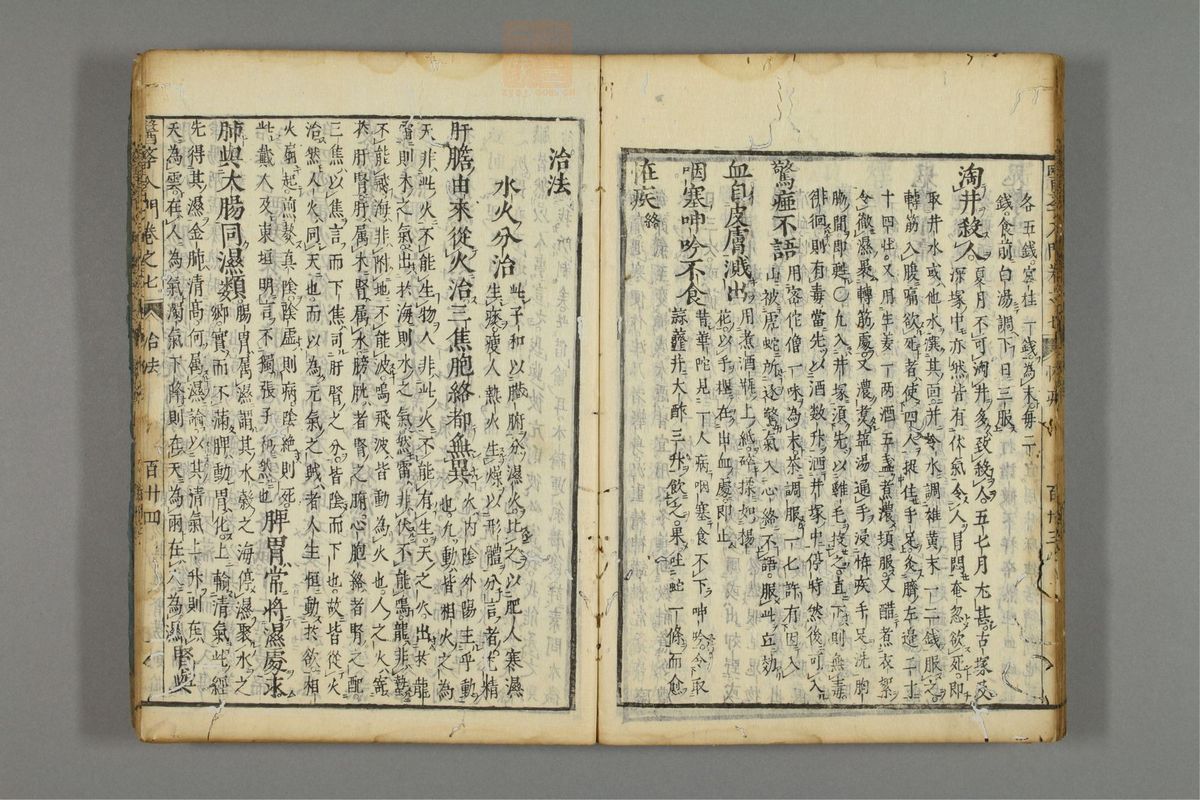 各五錢官桂一錢為末每二
錢食前白湯調下日三服
淘井殺人
夏月不可淘井多致殺人五七月尤甚古塚及
深塚中亦然皆有伏氣令人冒悶奄忽欲死即
取井水或他水潠其面并令水調雄黃末一二錢服之
轉筋入腹痛欲死者使四人捉住手足灸臍左邊二寸
十四壯又用生姜一兩酒五盞煮濃頓服又醋煮衣絮
令徹濕裹轉筋處又濃煮塩湯通手浸手足洗胸
脇間即甦〇凡入井塚須先以雞毛投之直下則無毒
徘徊則有毒當先以酒數升洒井塚中停時然後可入
驚瘂不語
用密佗僧一味為末茶調服一七許有因入
山被虎蛇所逐驚氣入心絡不語服此立効
血自皮膚濺出
用煮酒瓶上紙碎揉如楊
花以手捏在出血處即止
咽塞呻吟不食
昔華陀見一人病咽塞食不下呻吟令取
蒜虀大酢三升飲之果吐蛇一條而愈
在疾終
治法
水火分治
此子和以臟腑分濕火比之以肥人寒濕
生痰瘦人熱火生燥以形體分言者尤精
肝膽由來從火治三焦胞絡都無異
火內陰外陽主乎動
也凡動皆相火之為
天非此火不能生物人非此火不能有生天之火出於龍
雷則木之氣出於海則水之氣然雷非伏不能鳴龍非蟄
不能飛海非附地不能波鳴飛波皆動為火也人之火寄
於肝腎肝屬木腎屬水膀胱者腎之腑心胞絡者腎之配
三焦以焦言而下焦司肝腎之分皆陰而下也故皆從火
治然人火同天也而以為元氣之賊者人生恒動於欲相
火扇起煎熬真陰陰虛則病陰絕則死
此戴人及東垣明言不獨張子和然也
脾胃常將濕處求
肺與大腸同濕類
腸胃屬濕謂其水穀之海停濕聚水之
鄉實而不滿脾動胃化上輸清氣此經
先得其濕金肺清高何屬濕論以其清氣上升則在
天為雲在人為氣濁氣下降則在天為雨在人為濕
腎與
醫學入門卷之七
治法
百廿四